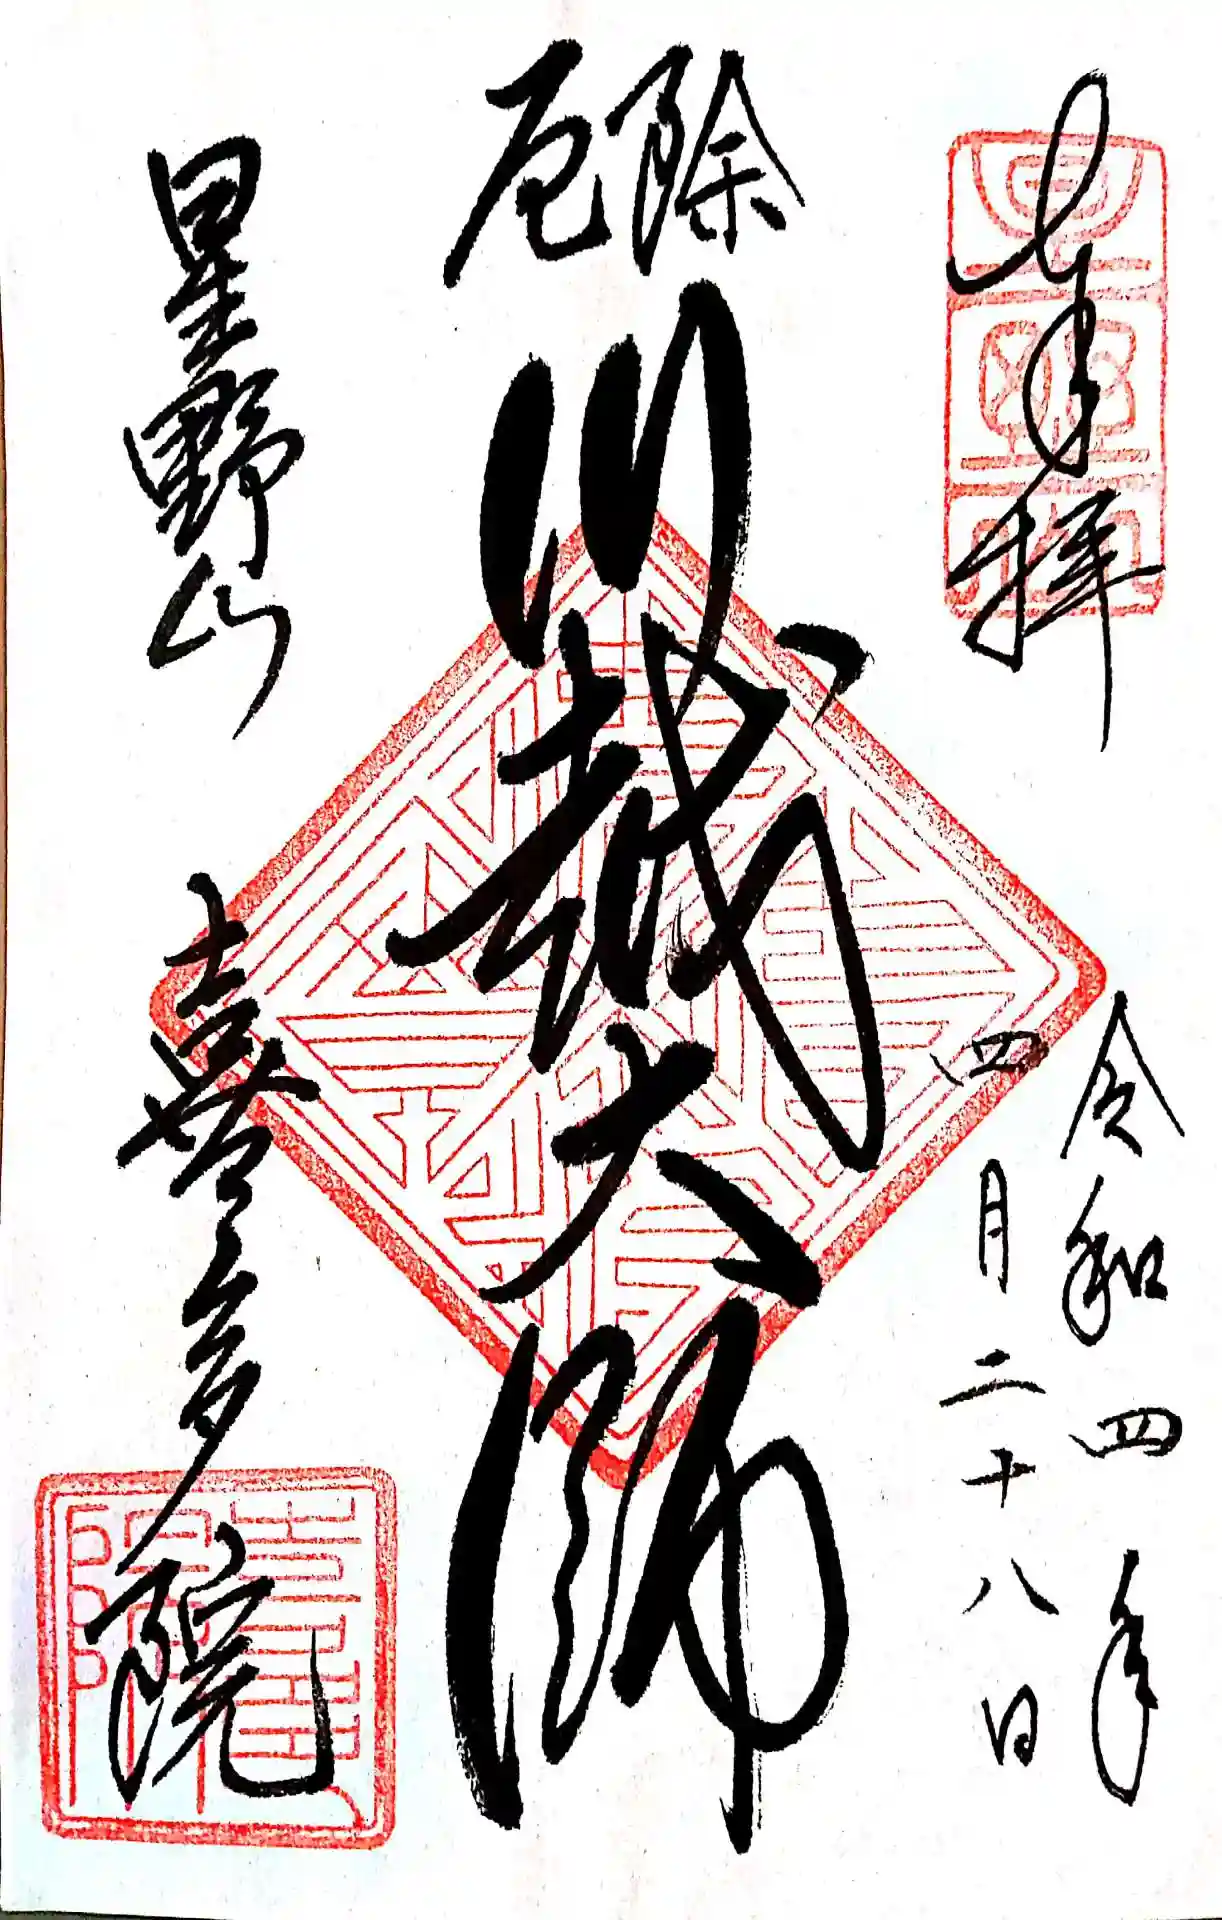 奉拝
令和四年
四月二十八日
厄除
川越大師
星野山
喜多院